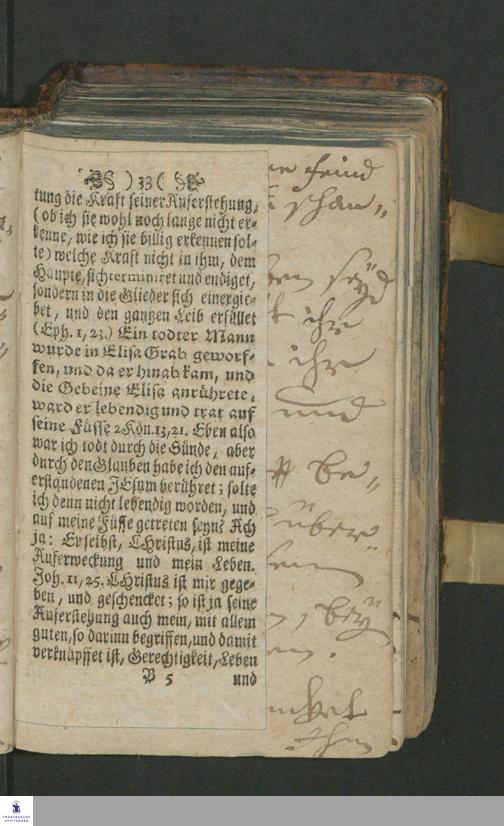 ) 33 (
tung die Kraft seiner Auferstehung,
(ob ich sie wohl noch lange nicht er-
kenne, wie ich sie billig erkennen sol-
te) welche Kraft nicht in ihm, dem
Haupte, sich terminiret und endiget,
sondern in die Glieder sich einergie-
bet, und den gantzen Leib erfüllet
(Eph. 1, 23.) Ein todter Mann
wurde in Elisa Grab geworf-
fen, und da er hinab kam, und
die Gebeine Elisa anrührete,
ward er lebendig und trat auf
seine Füsse 2 Kön. 13, 21. Eben also
war ich todt durch die Sünde, aber
durch den Glauben habe ich den auf-
erstandenen JEsum berühret; solte
ich denn nicht lebendig worden, und
auf meine Füsse getreten seyn? Ach
ja: Er selbst, CHristus, ist meine
Auferweckung und mein Leben.
Joh. 11, 25. CHristus ist mir gege-
ben, und geschencket; so ist ja seine
Auferstehung auch mein, mit allem
guten, so darinn begriffen, und damit
verknüpffet ist, Gerechtigkeit, Leben
B 5 und
feind
seyd
ihr
ihr
und
be-
über
bey